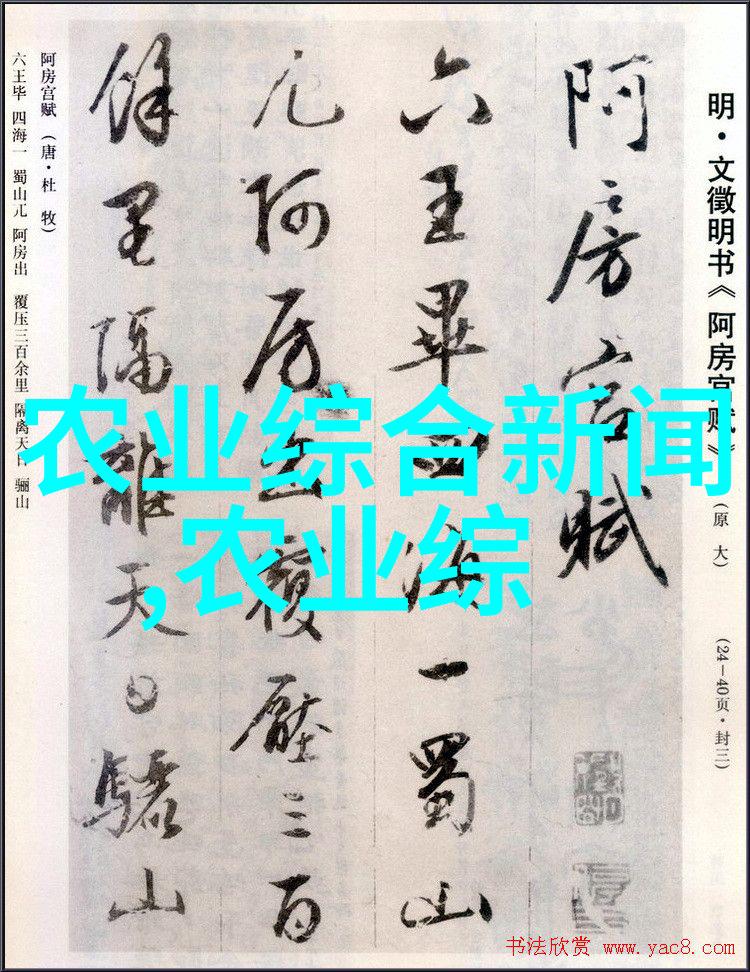 明·文徵明书《阿房宫赋》(原大) (24—40页·封三)
阿房宫賦
六王畢四海一蜀山
兀阿房出覆壓三百
餘里隔離天日驪山
阿房宫赋（唐·杜 牧）
六王毕 四海一 蜀山兀 阿房出 覆压三百余里 隔离天日 骊山
农业综合新闻
,农业综
书法欣赏 www.yac8.com